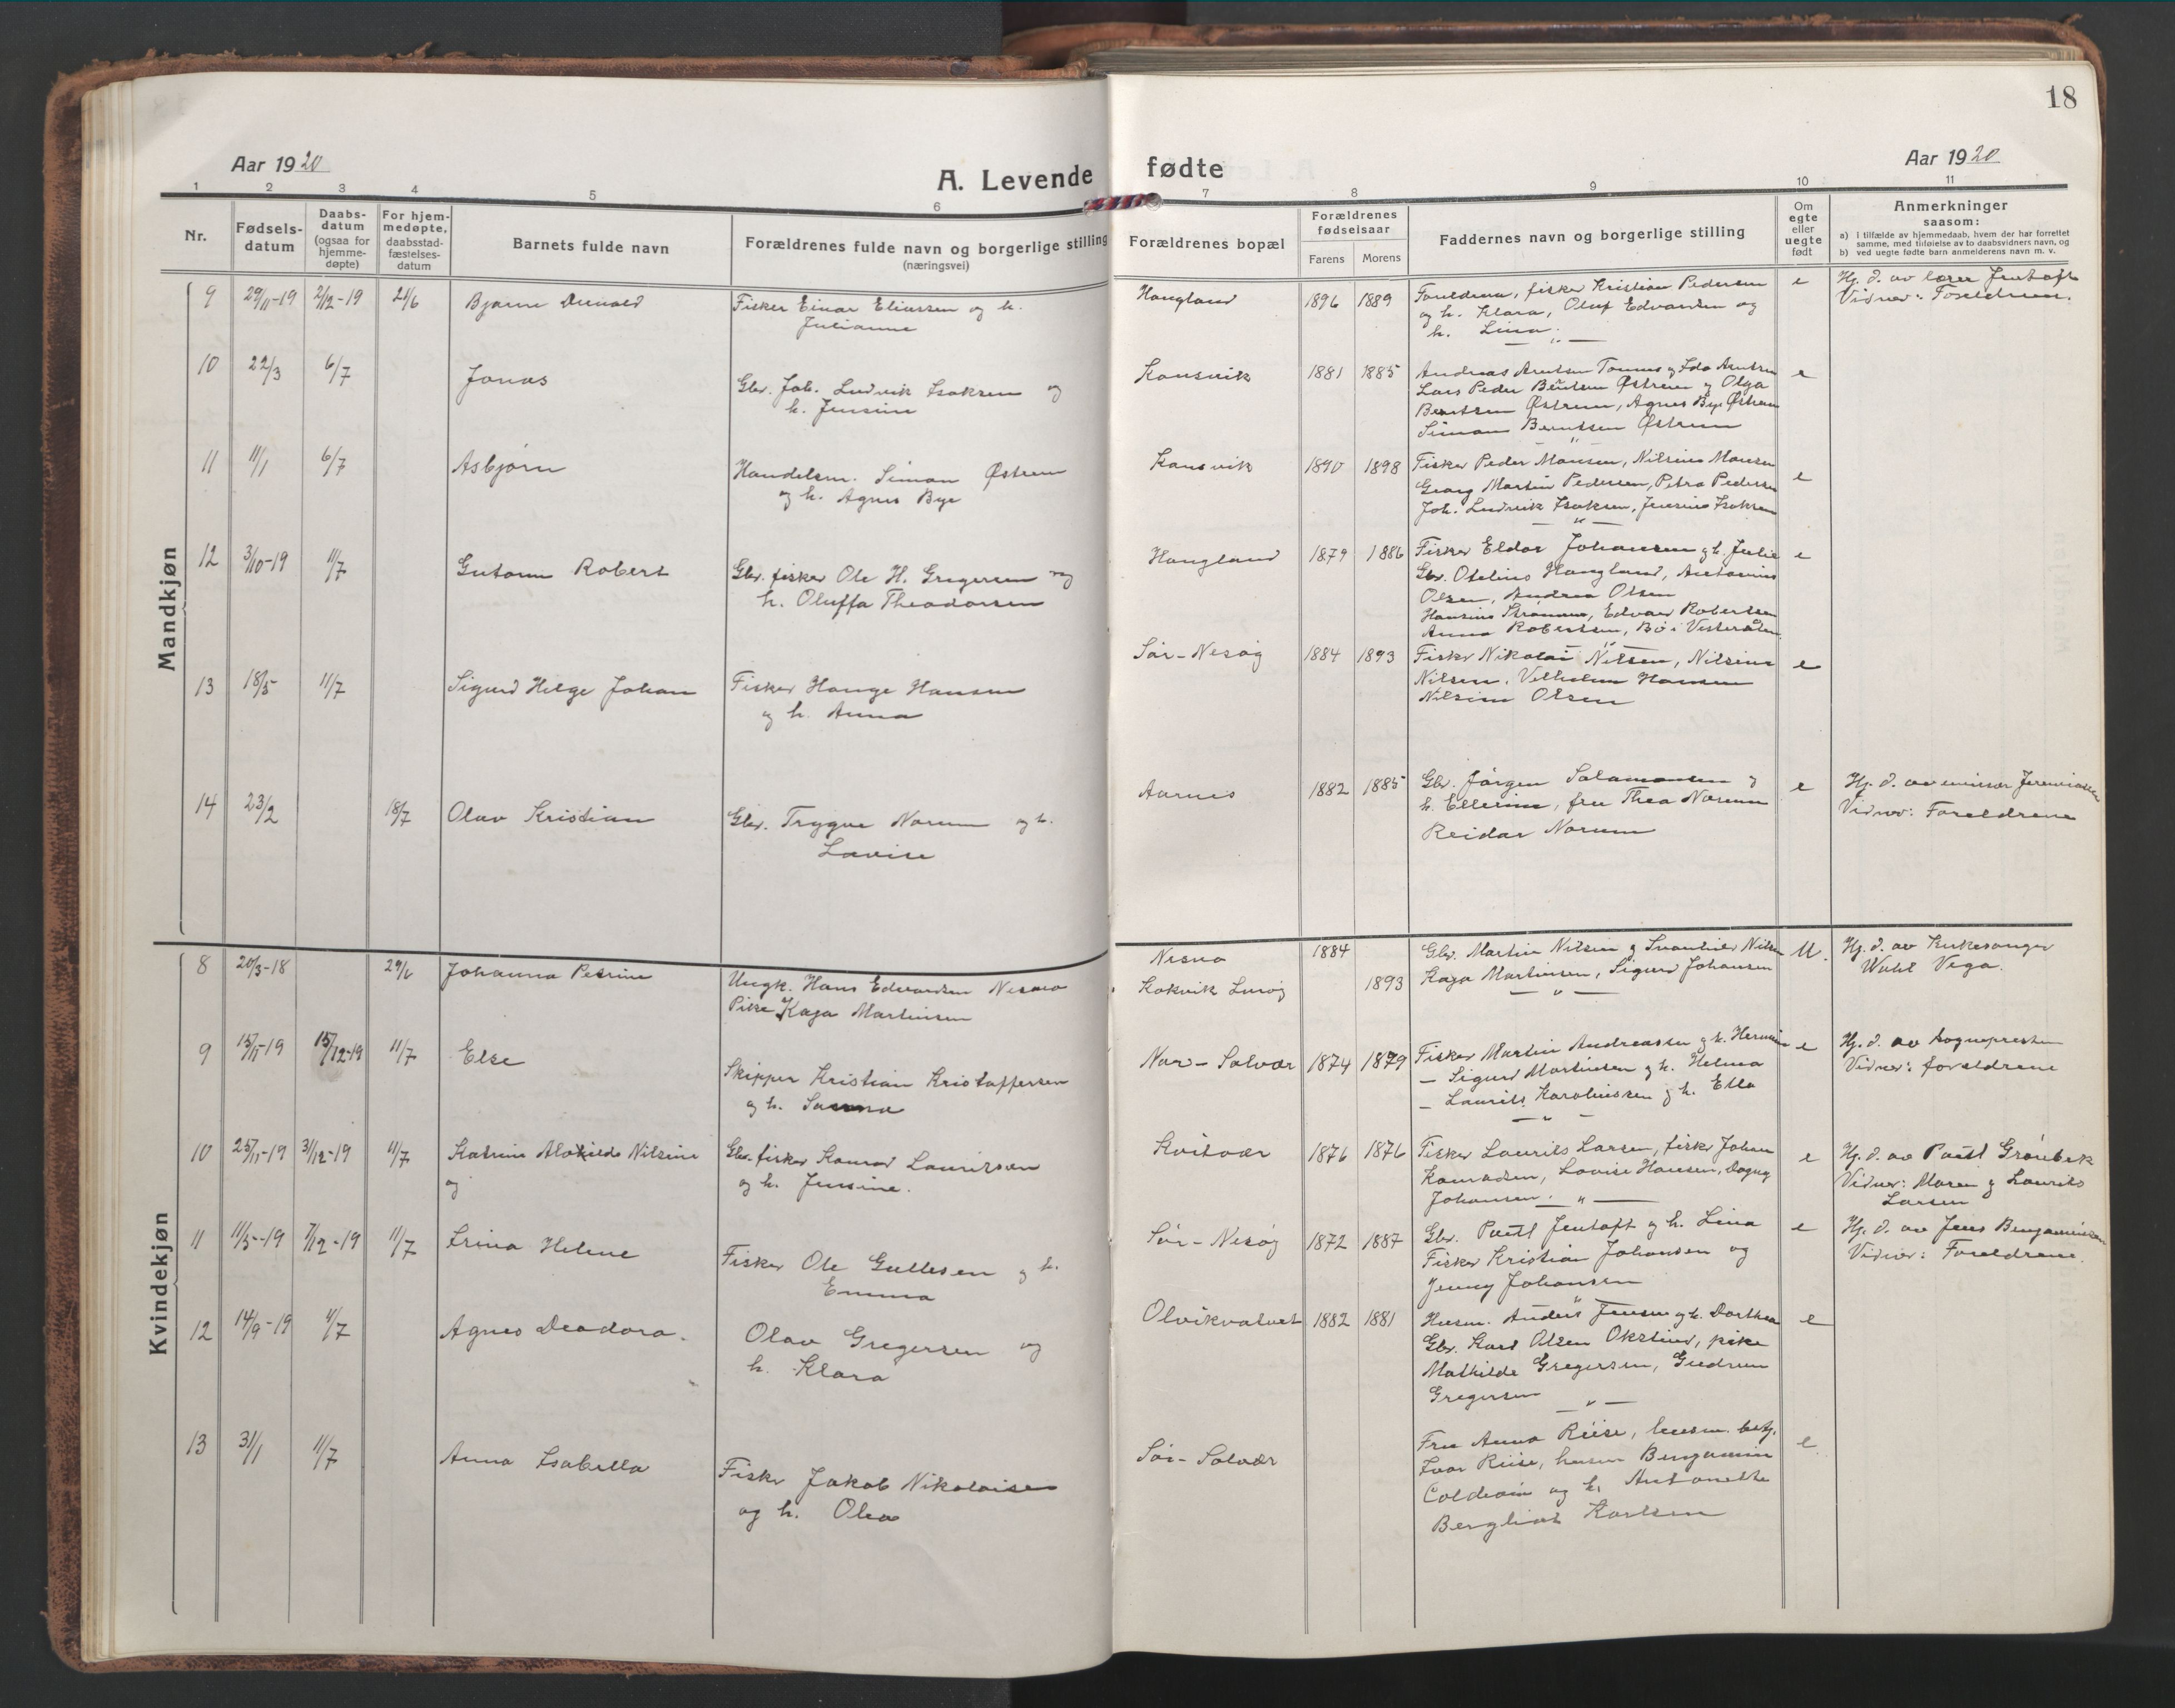 18
Aar 1920
A. Levende fødte
Aar 1920
1 2 3 4 5 6 7 8 9 10 11
Nr.
Fødsels-
datum
Daabs-
datum
(ogsaa for
hjemme-
døpte)
For hjem-
medøpte,
daabsstad-
fæstelses-
datum
Barnets fulde navn
Forældrenes fulde navn og borgerlige stilling
(næringsvei)
Forældrenes bopæl
Forældrenes
fødselsaar
Farens Morens
Faddernes navn og borgerlige stilling
Om
egte
eller
uegte
født
Anmerkninger
saasom:
a) i tilfælde av hjemmedaab, hvem der har forrettet
samme, med tilføielse av to daabsvidners navn, og
b) ved uegte fødte barn anmelderens navn m. v.
Mandkjøn
9 29/11-19 2/12-19 21/6 Bjarne
Fisker Einar Eliassen og h.
Julianne
Haugland 1896 1889
Foreldrene, fisker Kristian Pedersen
og h. Klara, Oluf Edvardsen og
h. Lina.
e
Hj. d. av lærer Jentoft
Vidner: Foreldrene.
10 22/3 6/7 Jonas
Gbr. Joh. Ludvik Isaksen og
h. Jensine
Konsvik 1881 1885
Andreas Arntsen Tomnes og Ida Arntsen
Lars Peder Berntsen Østrem og Olga
Berntsen Østrem, Agnes Bye Østrem
Simon Berntsen Østrem
e
11 11/1 6/7 Asbjørn
Handelsm. Simon Østrem
og h. Agnes Bye
Konsvik 1890 1898
Fisker Peder Monsen, Nilsine Monsen
Georg Martin Pedersen, Petra Pedersen
Joh. Ludvik Isaksen, Jensine Isaksen
e
12 3/10-19 11/7 Gutorm Robert
Gbr. fisker Ole H. Gregersen og
h. Oluffa Theodorsen
Haugland 1879 1886
Fisker Eldor Johansen og h. Julie
Gbr. Otelius Haugland, Antonius
Olsen, Andrea Olsen
Hansine Strømmen, Edvard Robertsen
Anna Robertsen, Bø i Vesterålen
e
13 18/5 11/7 Sigurd Helge Johan
Fisker Hauge Hansen
og h. Anna
Sør-Nesøy 1884 1893
Fisker Nikolai Nilsen, Nilsine
Nilsen, Vilhelm Hansen
Nilsine Olsen
e
14 23/2 18/7 Olav Kristian
Gbr. Trygve Norum og h.
Lovise
Aarnes 1882 1885
Gbr. Jörgen Salamonsen og
h. Ellerine, fru Thea Norum
Reidar Norum
e
Hj. d. av emissær Jeremiassen
Vidner: Foreldrene
Kvindekjøn
8 20/3-18 29/6 Johanna Petrine
Ungk. Hans Edvardsen Nesna
Pike Kaja Martinsen
Nesna 1884
Kokvik Lurøy 1893
Gbr. Martin Nilsen og Nilsen
Kaja Martinsen, Sigurd Johansen
U.
Hj. d. av kirkesanger
Wahl Vega.
9 15/11-19 15/12-19 11/7 Else
Skipper Kristian Kristoffersen
og h. Sanna
Nor-Solvær 1874 1879
Fisker Martin Andreassen og h. Hermine
- Sigurd Martinsen og h. Helma
- Laurits Karolinssen og h. Ella
e
Hj. d. av sognepresten
Vidner: foreldrene
10 25/11-19 31/12-19 11/7 Katrine Alvhilde Nilsine
og
Gbr. fisker Konrad Lauritsen
og h. Jensine.
Kvitvær 1876 1876
Fisker Laurits Larsen, fisker Johan
Konradsen, Lovise Hansen, Dagny
Johansen.
e
Hj. d. av Poul Grønbek
Vidner: Maren og Laurits
Larsen
11 11/5-19 7/12-19 11/7 Irina Helene
Fisker Ole Gullesen og h.
Emma
Sør-Nesøy 1872 1887
Gbr. Poul Jentoft og h. Lina
Fisker Kristian Johansen og
Jenny Johansen
e
Hj. d. av Jens Benjaminsen
Vidner: Foreldrene.
12 14/9-19 4/7 Agnes Deodora.
Olav Gregersen og
h. Klara
Olvikvatnet 1882 1881
Husm. Anders Jensen og h. Dorthea
Gbr. Kard Olsen Okstind, pike
Mathilde Gregersen, Gudrun
Gregersen
e
13 31/1 11/7 Anna Isabella
Fisker Jakob Nikolaisen
og h. Olea
Sør-Solvær
Fru Anna Riise, lensm. betj.
Ivar Riise, husm Benjamin
Coldevin og h. Antonette
Bergliot Karlsen
e.